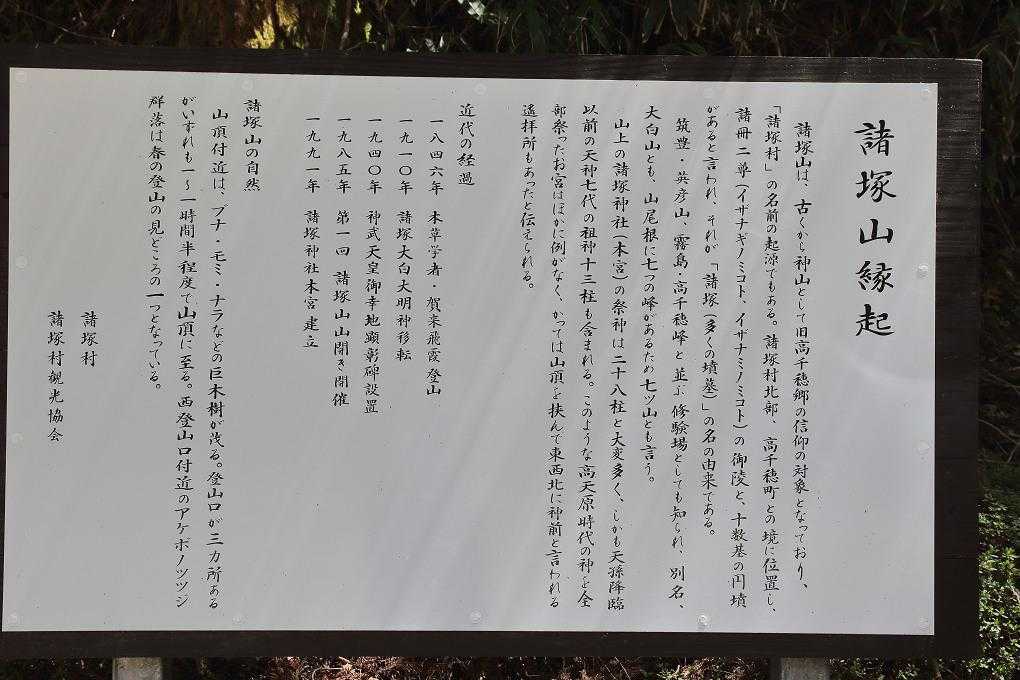 諸塚山縁起
諸塚山は、古くから神山として旧高千穂郷の信仰の対象となっており、
「諸塚村」の名前の起源でもある。諸塚村北部、高千穂町との境に位置し、
諸冊二尊(イザナギノミコト、イザナミノミコト)の御陵と、十数基の円墳
があると言われ、それが「諸塚(多くの墳墓)」の名の由来である。
筑豊・英彦山、霧島・高千穂峰と並ぶ修験場としても知られ、別名、
大白山とも、山尾根に七つの峰があるため七ツ山とも言う。
山上の諸塚神社(本宮)の祭神は二十八柱と大変多く、しかも天孫降臨
以前の天神七代の祖神十三柱も含まれる。このような高天原時代の神を全
部祭ったお宮はほかに例がなく、かつては山頂を挟んで東西北に神前と言われる
遙拝所もあったと伝えられる。
近代の経過
一八四六年 本草学者・賀来飛霞登山
一九一〇年 諸塚大白大明神移転
一九四〇年 神武天皇御幸地顕彰碑設置
一九八五年 第一回 諸塚山山開き開催
一九九一年 諸塚神社本宮建立
諸塚山の自然
山頂付近は、ブナ・モミ・ナラなどの巨木樹が茂る。登山口が三カ所ある
がいずれも一～一時間半程度で山頂に至る。西登山口付近のアケボノツツジ
群落は春の登山の見どころの一つとなっている。
諸塚村
諸塚村観光協会